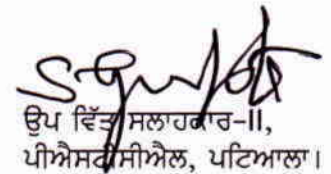 ਉਪ ਵਿੱਤ ਸਲਾਹਕਾਰ-II,
ਪੀਐਸਟੀਸੀਐਲ, ਪਟਿਆਲਾ।